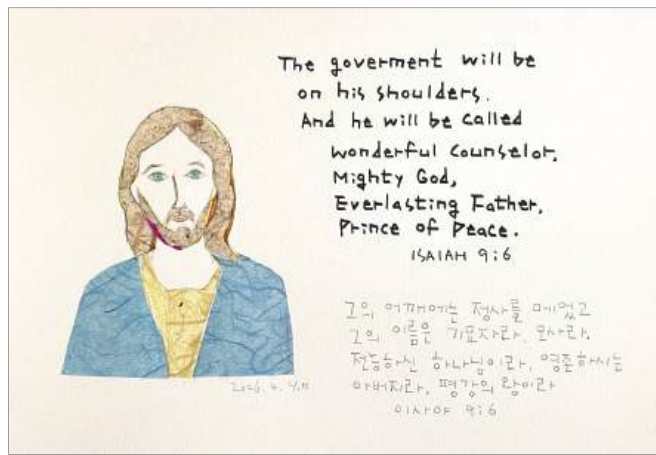 The goverment will be
on his shoulders.
And he will be called
wonderful Counselor,
Mighty God,
Everlasting Father,
Prince of Peace.
ISAIAH 9:6
그의 어깨에는 정사를 메었고
그의 이름은 기묘자라, 모사라,
전능하신 하나님이라, 영존하시는
아버지라, 평강의 왕이라
이사야 9:6